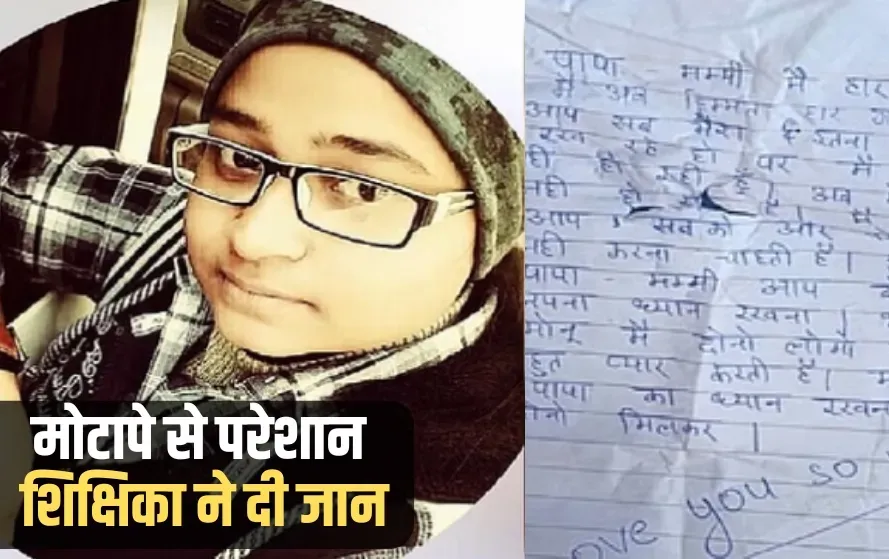 मोटापे से परेशान
शिक्षिका ने दी जान
पापा - मम्मी मै हार
मै अब हिम्मता हार
आप सब मेरा इतना
रहे हो पर मै
ही हो रही है। अब
नही हो है।
आप सबको और
नही करना चाहती हूँ।
पापा - मम्मी आप
अपना ध्यान रखना।
मोनू मै दोनो लोगो
प्यार करती हूँ।
पापा का ध्यान रखना
मिलकर।
you so